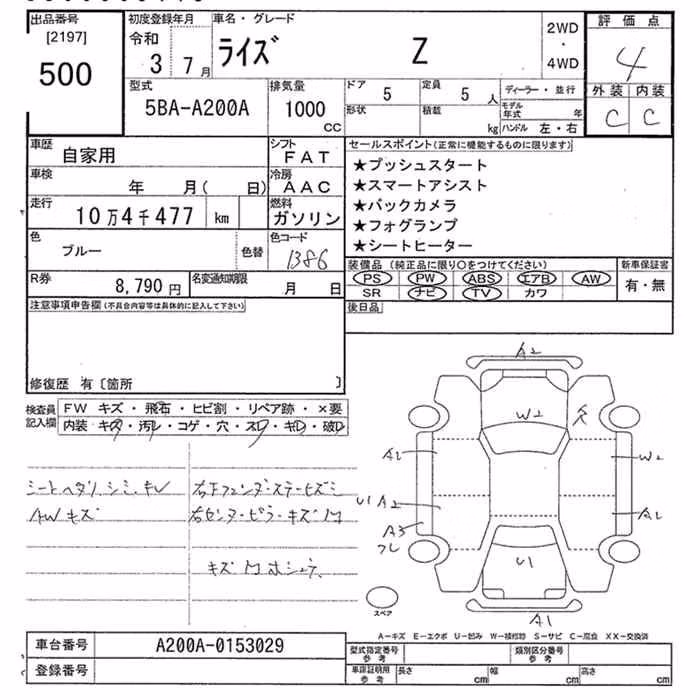 出品番号
[2197]
500
初度登録年月
令和
3 7月
車名・グレード
ライズ Z
2WD
・
4WD
評価点
4
外装 内装
C C
型式
5BA-A200A
排気量
1000
CC
ドア
5
定員
5 人
形状
積載
kg
ディーラー・並行
モデル年式 年
ハンドル 左・右
車歴
自家用
シフト
FAT
車検
年 月( 日)
冷房
AAC
走行
10万4千477 km
燃料
ガソリン
色
ブルー
色替
色コード
1386
R券
8,790円
名変通知期限
月 日
セールスポイント(正常に機能するものに限ります)
★プッシュスタート
★スマートアシスト
★バックカメラ
★フォグランプ
★シートヒーター
装備品(純正品に限り○をつけてください)
PS PW ABS エアB AW
SR ナビ TV カワ
新車保証書
有・無
注意事項申告欄(不具合内容等は具体的に記入して下さい)
後日品
修復歴 有〔箇所 〕
検査員
記入欄
FW キズ・飛石・ヒビ割・リペア跡・×要
内装・キズ・汚レ・コゲ・穴・スレ・キレ・破レ
シートヘタリ シミ・キレ
AWキズ
右Fフェンダーステーヒズミ
右センターピラーキズ
キズ
A2
W2
A2
W2
U1 A2
A3
A2
U1
A1
スペア
A-キズ E-エクボ U-凹み W-補修物 S-サビ C-腐食 XX-交換済
車台番号
A200A-0153029
登録番号
型式指定番号
参考
類別区分番号
参考
車庫証明用
参考
長さ cm 幅 cm 高さ cm